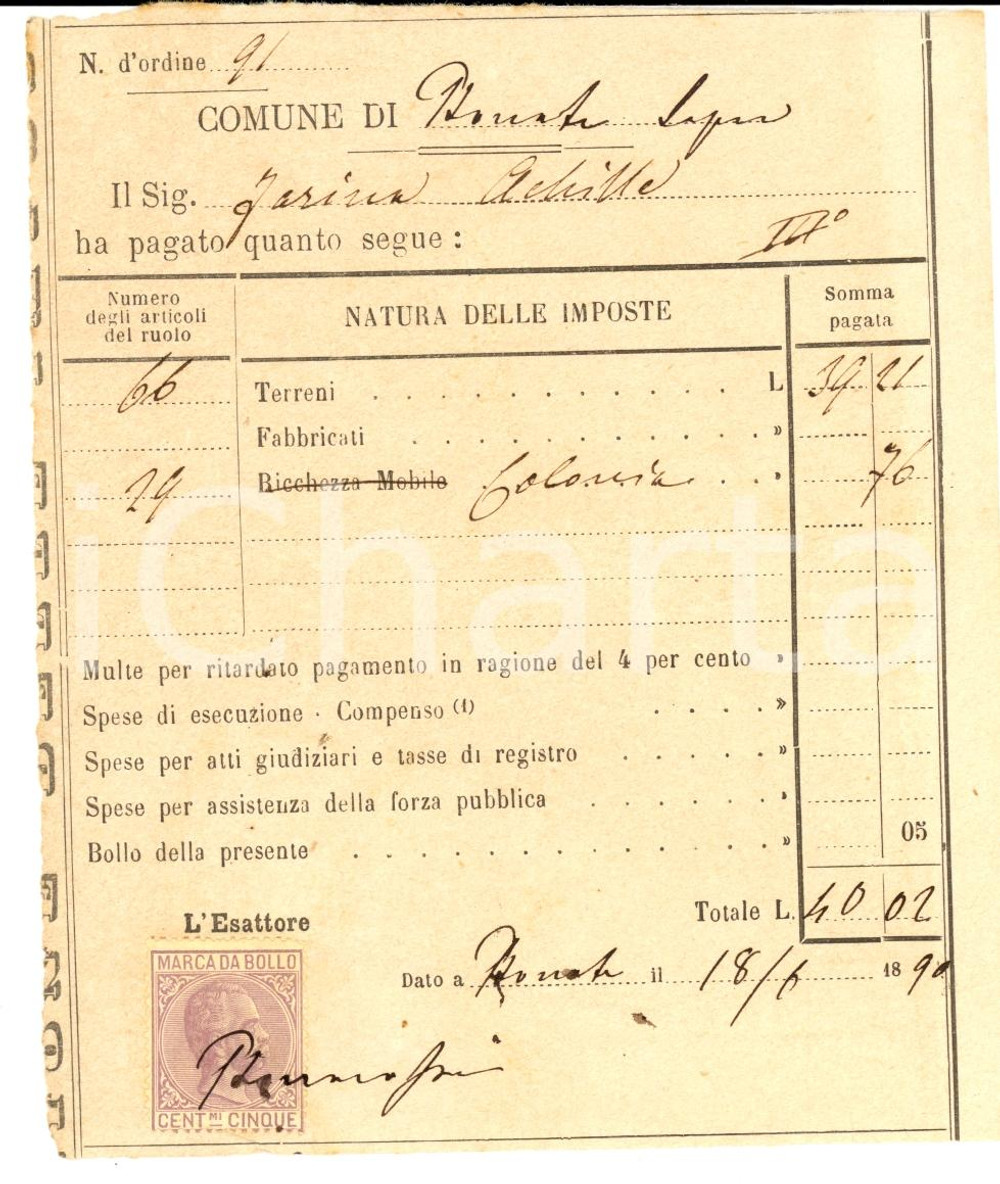 N. d'ordine 91
COMUNE DI Lonate
Il Sig. Farina Achille
ha pagato quanto segue :
III°
Numero degli articoli del ruolo
NATURA DELLE IMPOSTE
Somma pagata
66 Terreni L. 39 21
Fabbricati »
29 Ricchezza Mobile Colonia » 76
Multe per ritardato pagamento in ragione del 4 per cento »
Spese di esecuzione - Compenso (1) »
Spese per atti giudiziari e tasse di registro »
Spese per assistenza della forza pubblica »
Bollo della presente » 05
Totale L. 40 02
L'Esattore
Dato a Lonate il 18/6 1890
MARCA DA BOLLO
CENT.MI CINQUE
iCharta